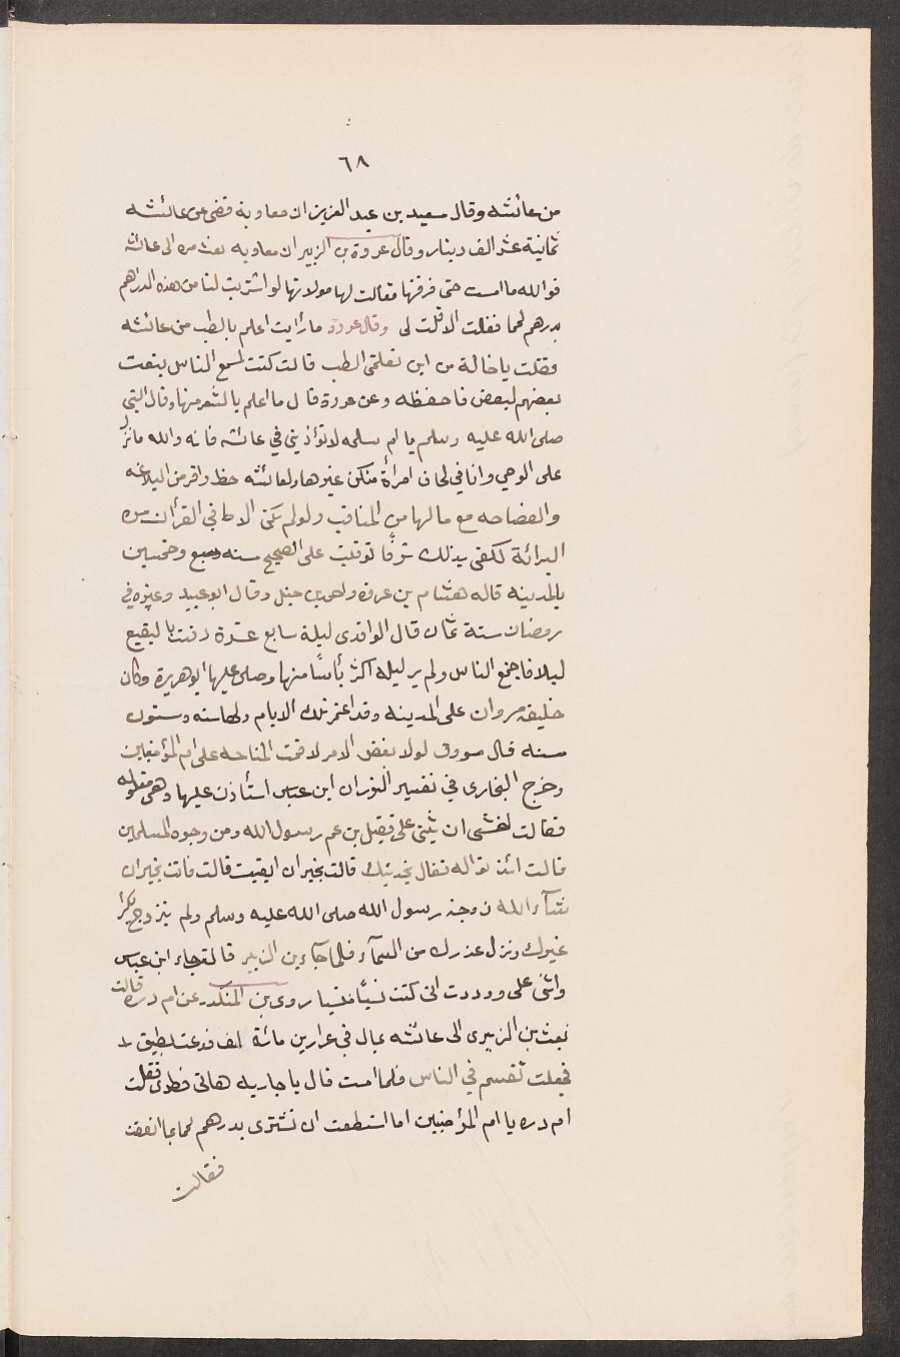 ٦٨
من عائشه وقال سعيد بن عبد العزيز ان معاوية قضى عن عائشه
ثمانية عشر الف دينار وقال عروة بن الزبير ان معاويه بعث مره الى عائشه
فوالله ما امست حتى فرقتها فقالت لها مولاتها لو اشتريت لنا من هذه الدراهم
بدرهم لحما فقالت الا قلت لى وقال عروة ما رأيت اعلم بالطب من عائشه
فقلت يا خالة من اين تعلمتى الطب قالت كنت اسمع الناس ينعت
بعضهم لبعض فاحفظه وعن عروة قال ما اعلم بالشعر منها وقال النبي
صلى الله عليه وسلم يا ام سلمه لا تؤاذيني في عائشه فانه والله ما نزل
على الوحي وانا في لحاف امرأة منكن غيرها ولعائشه حظ وافر من البلاغه
والفصاحه مع مالها من المناقب ولو لم يكن الا ما في القرأن من
البرائة لكفى بذلك شرفًا توفيت على الصحيح سنه سبع وخمسين
بالمدينه قاله هشام بن عروه واحمد بن حنبل وقال ابو عبيد وغيره في
رمضان سنة ثمان قال الواقدى ليلة سابع عشرة دفنت بالبقيع
ليلا فاجتمع الناس ولم ير ليله اكثر بأسًا منها وصلى عليها ابو هريرة وكان
خليفة مروان على المدينه وقد اعتمر تلك الايام ولها سته وستون
سنه قال مسروق لولا بعض الامر لاقمت المناحه على ام المؤمنين
وخرج البخارى في تفسير النور ان ابن عباس استأذن عليها وهى مقلوبه
فقالت اخشى ان يثنى على فقيل بن عم رسول الله ومن وجوه المسلمين
قالت ائذنوا له فقال تجدينك قالت بخير ان ابقيت قالت فانت بخير ان
شآء الله زوجة رسول الله صلى الله عليه وسلم ولم يتزوج بكرًا
غيرك ونزل عذرك من السمآء فلما جآء بن الزبير قالت جاء ابن عباس
واثنى على ووددت انى كنت نسيًا منسيا روى بن المنكدر عن ام دره قالت
بعث بن الزبيرى الى عائشه بمال فى غرارين مائة الف فدعت بطبق
فجعلت تقسم في الناس فلما امست قال يا جاريه هاتى فطرى فقلت
ام دره يا ام المؤمنين اما استطعت ان تشترى بدرهم لحما مما انفقت
فقالت